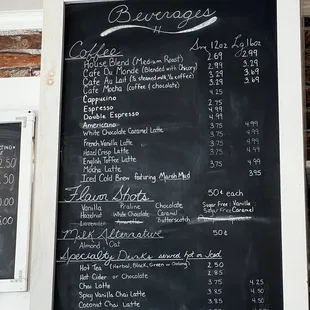 Beverages
Coffee Sm 12oz Lg 16oz
House Blend (Medium Roast) 2.69 3.29
Cafe Du Monde (Blended with Chicory) 2.99 3.29
Cafe Au Lait (½ steamed milk/½ coffee) 3.29 3.69
Cafe Mocha (coffee & chocolate) 3.69
Cappucino 4.25
Espresso 2.75
Double Espresso
Americano
White Chocolate Caramel Latte 3.75 4.99
French Vanilla Latte 3.75 4.99
Hazel Crisp Latte 3.75 4.99
English Toffee Latte 3.75 4.99
Mocha Latte 3.75 4.99
Iced Cold Brew featuring Marsh Mud 3.95
Flavor Shots 50¢ each
Vanilla Praline Chocolate Sugar Free: Vanilla
Hazelnut White Chocolate Caramel Sugar Free Caramel
Butterscotch
Milk Alternative 50¢
Almond Oat
Specialty Drinks served hot or Iced
Hot Tea (Herbal, Black, Green or Oolong) 2.50
Hot Cider or Chocolate 2.95
Chai Latte 3.75 4.25
Spicy Vanilla Chai Latte 3.95 4.50
Coconut Chai Latte 3.95 4.50